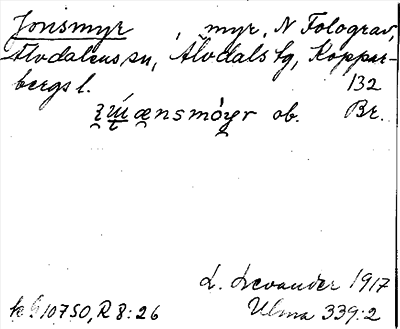 Jonsmyr , myr, N Folograv,
Älvdalens sn, Älvdals tg, Koppar-
bergs l. 132
ob. Br.
L. Levander 1917
10750, R8:26 Ulma 339:2